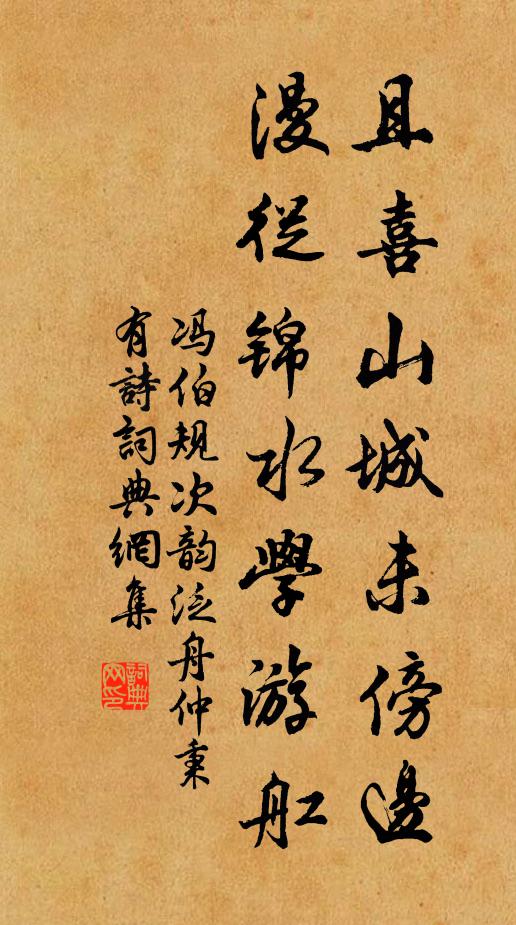 且喜山城未傍邊
漫從錦水學游舡
冯伯規次韵泛舟仲秉
有詩詞典網集
詞典网印